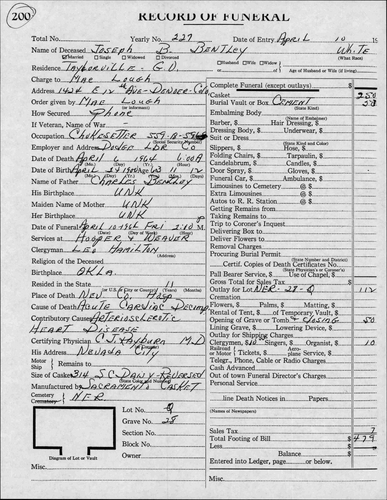 200
RECORD OF FUNERAL
Total No. Yearly No. 227 Date of Entry April 10 19
Name of Deceased Joseph B. Bentley White
Married Single Widowed Divorced Husband Wife Widow of (What Race)
Residence Taylorville - G.V. Age of Husband or Wife (if living)
Charge to Mae Lough
Address 1424 E 12th Ave - Denver - Colo
Order given by Mae Lough
How Secured Phone
If Veteran, Name of War
Occupation Chokesetter
(Social Security Number)
Employer and Address
Date of Death April 6:00A
Date of Birth April
Name of Father Charles Bentley
His Birthplace UNK
Maiden Name of Mother UNK
Her Birthplace UNK
Date of Funeral April 10 Fri 2:00 M
Services at Hooper & Weaver
Clergyman Leo Hamilton
(Address)
Religion of the Deceased
Birthplace OKLA.
Resident in the State 11
Place of Death Nev Co. Hosp
Cause of Death Acute Cardiac Decomp
Contributory Causes Arteriosclerotic
Heart Disease
Certifying Physician C.J. Rayburn M.D
His Address Nevada City
Motor Ship
Remains to
Size of Casket
Manufactured by Sacramento Casket
Cemetery
Crematory NER
Lot No. Q
Grave No. 28
Section No.
Block No.
Owner
Diagram of Lot or Vault
Misc.
Complete Funeral (except outlays) $
Casket 250
Burial Vault or Box Cement 50
(State Kind)
Embalming Body
(Name of Embalmer)
Barber, $ Hair Dressing, $
Dressing Body, $ Underwear, $
Suit or Dress
(State Kind and Color)
Slippers, $ Hose, $
Folding Chairs, $ Tarpaulin, $
Candelabrum, $ Candles, $
Door Spray, $ Gloves, $
Funeral Car, $ Ambulance, $
Limousines to Cemetery @ $
Extra Limousines @ $
Autos to R. R. Station @ $
Getting Remains from
Taking Remains to
Trip to Coroner's Inquest
Delivering Box to
Deliver Flowers to
Removal Charges
Procuring Burial Permit
(State Number and District)
Certif. Copies of Death Certificates No.
(State Physician's or Coroner's)
Pall Bearer Service, $ Use of Chapel, $
Gross Total for Sales Tax $
Outlay for Lot NER - 28 - Q 112
Cremation
Flowers, $ Palms, $ Matting, $
Rental of Tent, $ of Temporary Vault, $
Opening of Grave or Tomb & Closing 50
Lining Grave, $ Lowering Device, $
Outlay for Shipping Charges
Clergymen, $10 Singers, $ Organist, $ 10
Railroad or Motor Tickets, $ Aeroplane Service, $
Telegr., Phone, Cable or Radio Charges
Cash Advanced
Out of town Funeral Director's Charges
Personal Service
line Death Notices in Papers
(Names of Newspapers)
Sales Tax 7
Total Footing of Bill $ 479
Less $
Balance $
Entered into Ledger, page or below.
Misc.